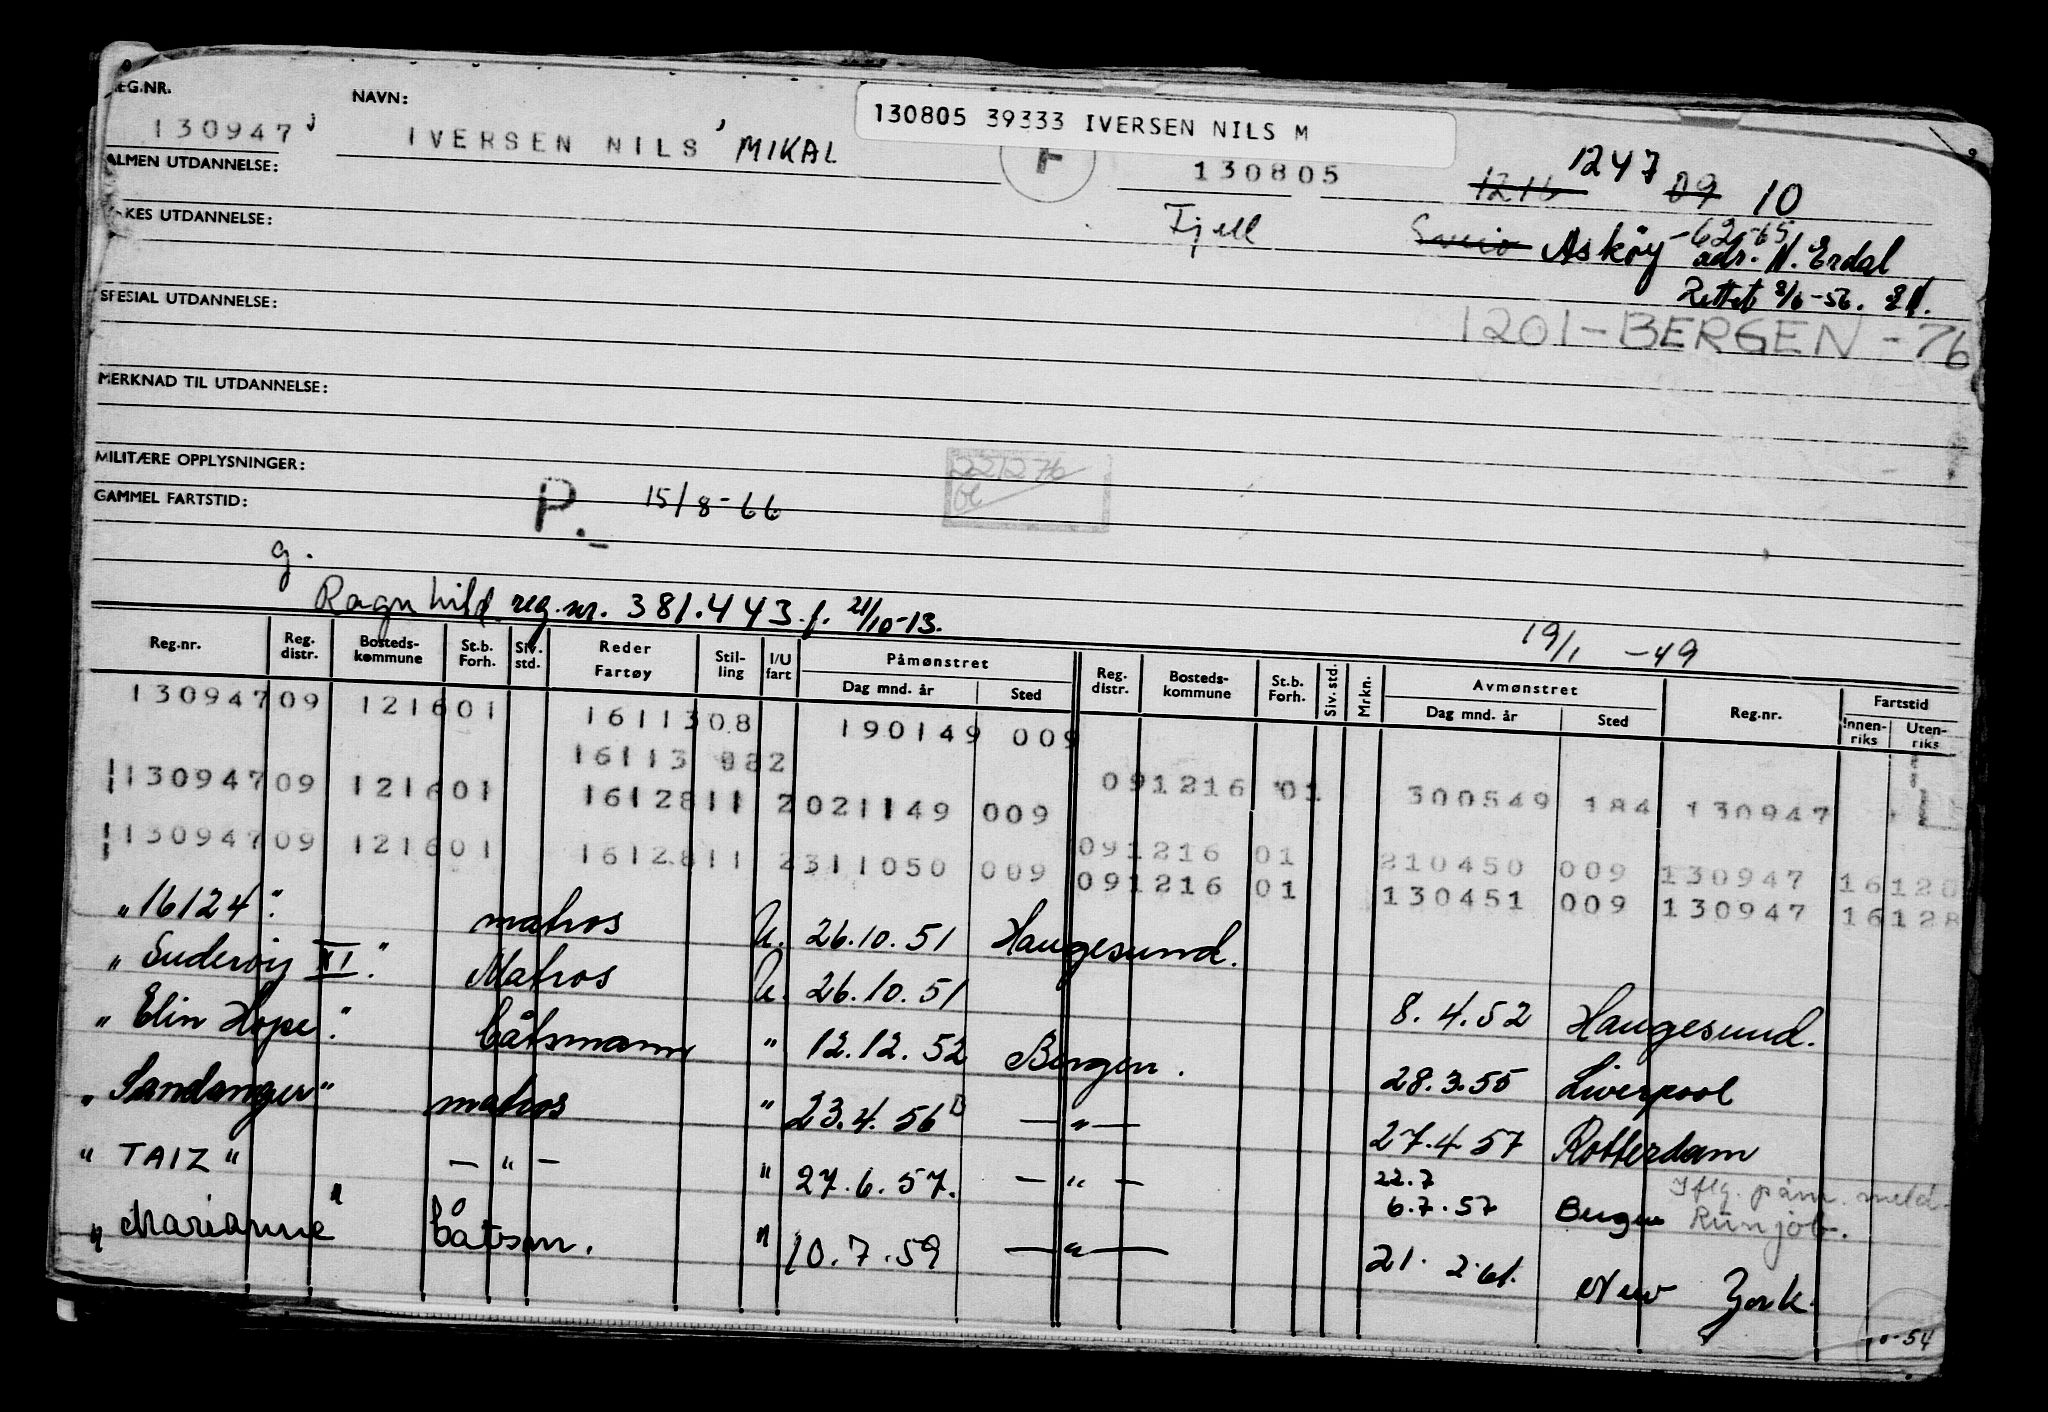 130805 39333 IVERSEN NILS M
EG.NR. NAVN:
130947 IVERSEN NILS MIKAL F 130805 1216 1247 09 10
ALMEN UTDANNELSE:
KES UTDANNELSE: Fjell Sveio Asköy -62-65
adr. N. Erdal
SPESIAL UTDANNELSE: Rettet 8/6-56.
1201-BERGEN-76
MERKNAD TIL UTDANNELSE:
MILITÆRE OPPLYSNINGER:
GAMMEL FARTSTID: P.- 15/8-66
g.
Ragnhild reg.nr. 381.443 f. 21/10-13. 19/1 -49
Reg.nr. Reg. distr. Bosteds-kommune St.b. Forh. Siv. std. Reder Fartøy Stil-ling I/U fart Påmønstret Dag mnd. år Sted Reg. distr. Bosteds-kommune St.b. Forh. Siv. std. Mrkn. Avmønstret Dag mnd. år Sted Reg.nr. Fartstid Innen-riks Uten-riks
130947 09 1216 01 16113 08 190149 009
16113 822 091216 01 300549 184 130947
130947 09 1216 01 16128 11 2 021149 009 091216 01 210450 009 130947 16128
130947 09 1216 01 16128 11 2 311050 009 091216 01 130451 009 130947 16128
"16124" matros U. 26.10.51 Haugesund.
"Suderöy XI" Matros U. 26.10.51 8.4.52 Haugesund.
"Elin Hope" båtsmann " 12.12.52 Bergen. 28.3.55 Liverpool
"Sandanger" matros " 23.4.56 —"— 27.4.57 Rotterdam
"TAIZ" —"— " 27.6.57. —"— 22.7 6.7.57 Bergen Iflg. påm. meld. Runjob.
"Marianne" båtsm. " 10.7.59 —"— 21.2.61. New York.
-54